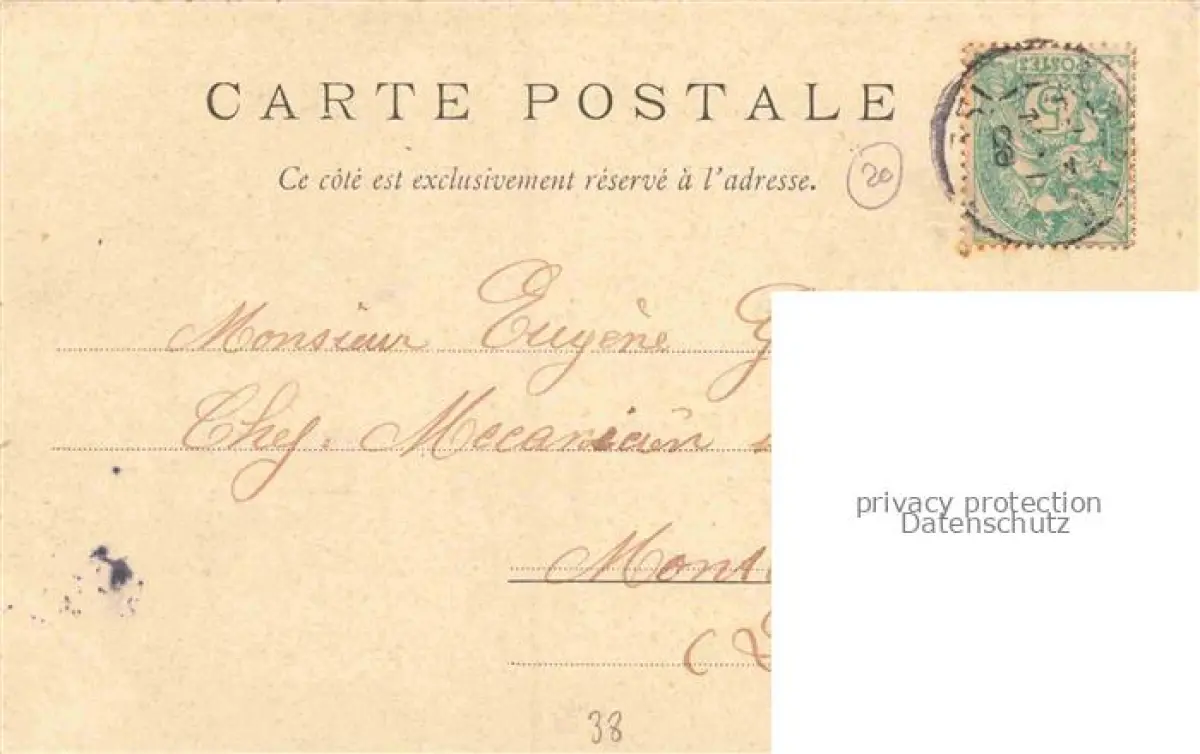 CARTE POSTALE
Ce côté est exclusivement réservé à l'adresse.
20
POSTES
5
Monsieur Eugène G
Chef. Mecanicien
Mont
(
38
privacy protection
Datenschutz